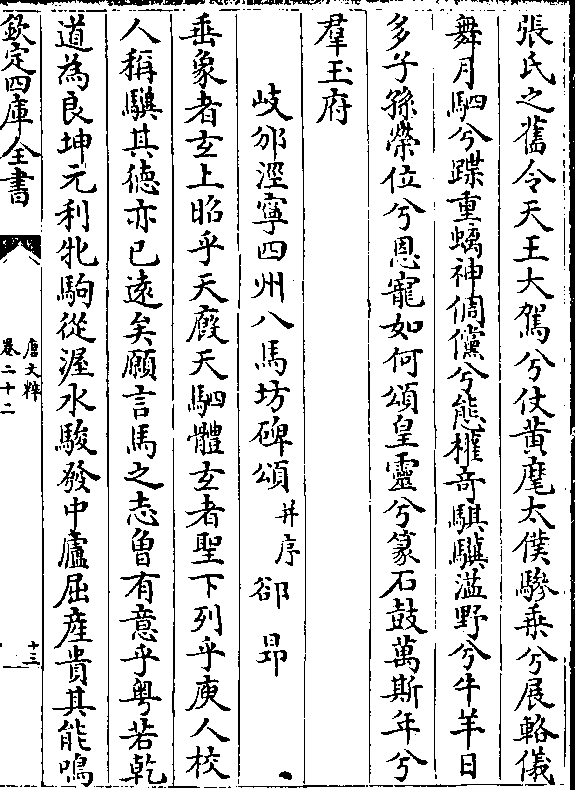 張氏之舊令天王大駕兮仗黃麾太僕驂乗兮展輅儀
舞月駟兮蹀重螭神倜儻兮態權竒騏驥滋野兮牛羊日
多子孫榮位兮恩寵如何頌皇靈兮篆石鼓萬斯年兮
羣玉府
岐邠涇寧四州八馬坊碑頌并序 郤昻
垂象者玄上昭乎天廐天駟體玄者聖下列乎庾人校
人稱驥其徳亦已遠矣願言馬之志魯有意乎粤若乾
道為良坤元利牝駒從渥水駿發中廬屈產貴其能鳴
欽定四庫全書
唐文粹
卷二十二
十三